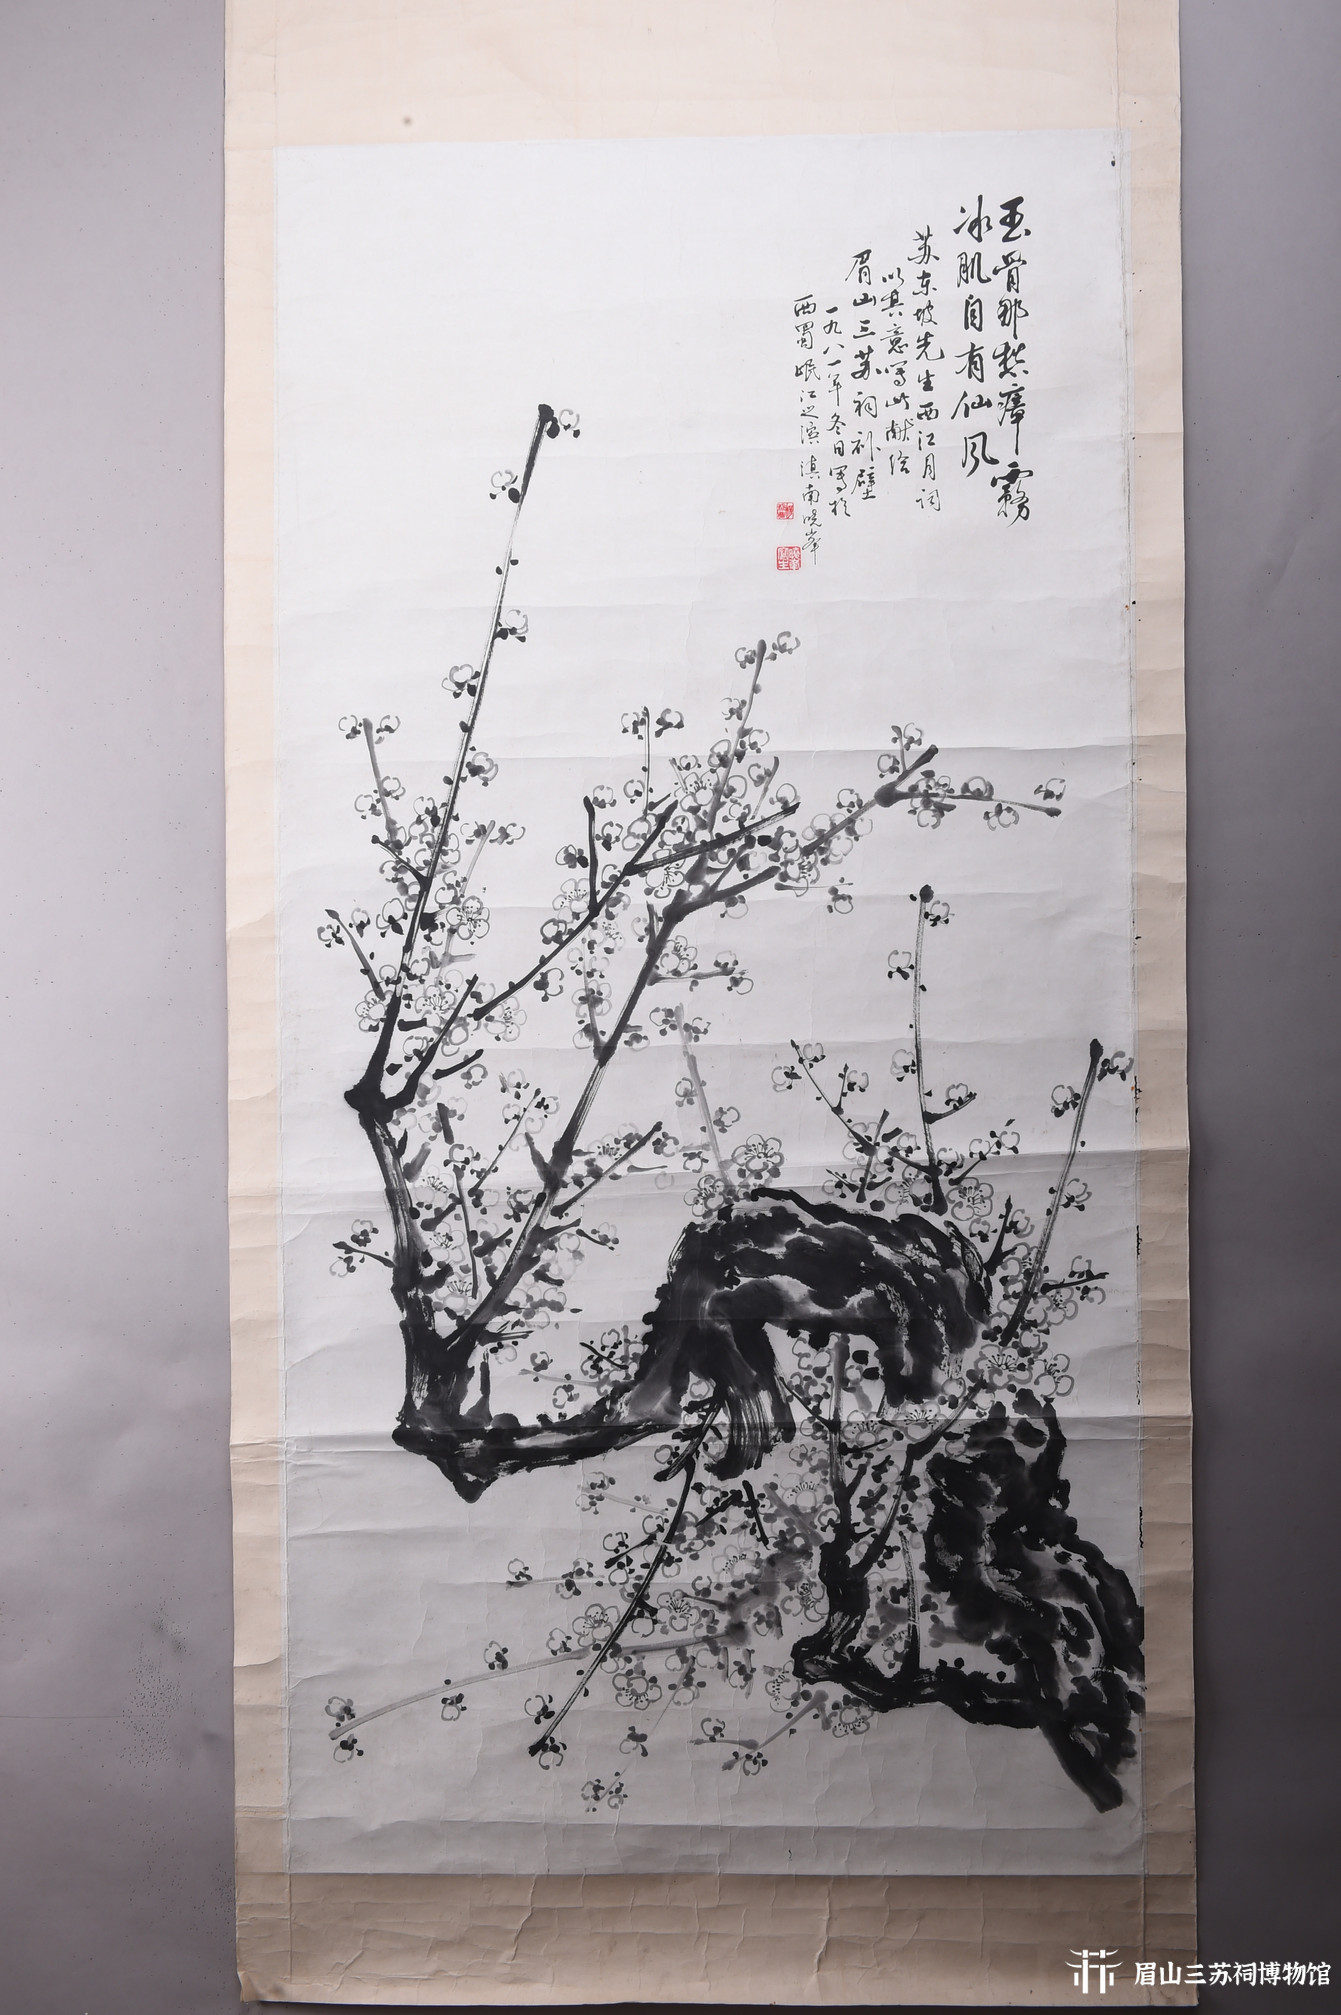 玉骨那愁瘴霧
冰肌自有仙风
苏东坡先生西江月词
以其意写此献给
眉山三苏祠补壁
一九八一年冬日写于
西蜀岷江之滨滇南晓峯
眉山三苏祠博物馆